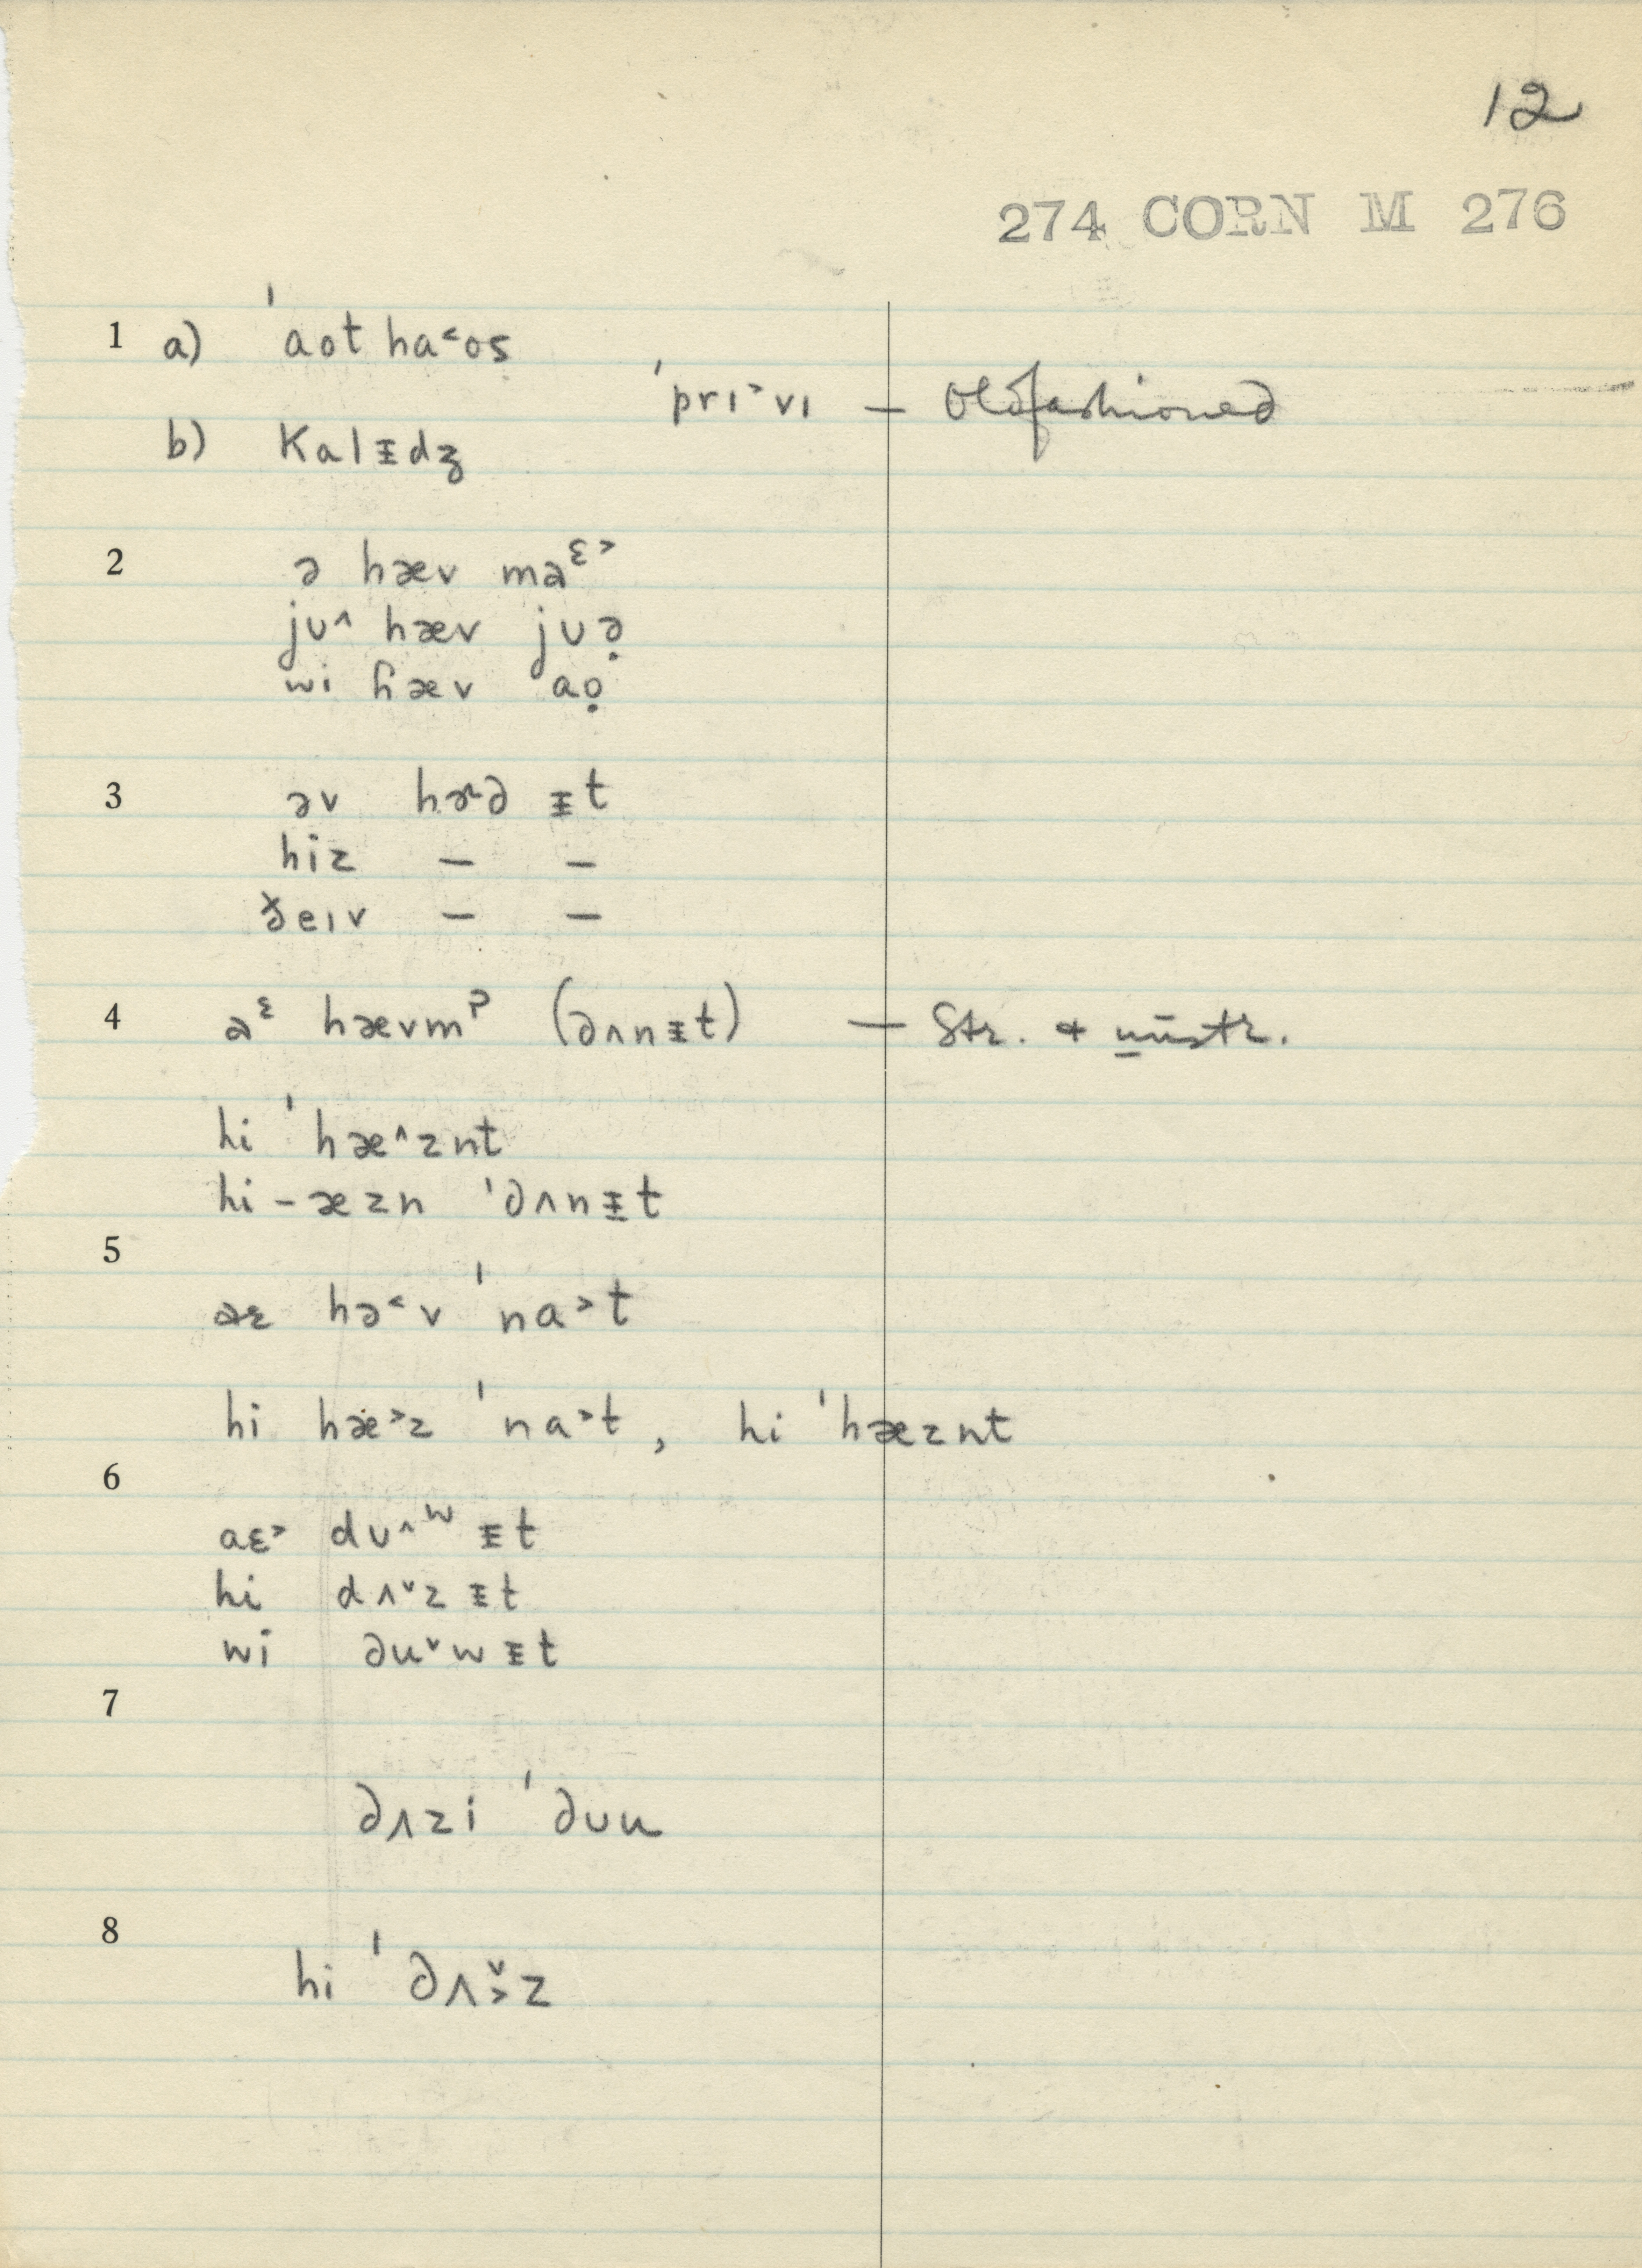 12
274 CORN M 276
1 a) ˈaot ha˂os
ˈprɪ˃vɪ — Oldfashioned
b) Kalᵻdʒ
2 ə hæv maᵋ˃
jʊ˄ hæv jʊə̣
wi ɦæv aọ
3 əv hɚd ᵻt
hiz — —
ðeɪv — —
4 aᵋ hævmˀ (dʌnᵻt) — Str. & unstr.
hi ˈhæ˄znt
hi-æzn ˈdʌnᵻt
5
aɛ hə˂v ˈna˃t
hi hæ˃z ˈna˃t, hi ˈhæznt
6
aɛ˃ dʊ˄ʷ ᵻt
hi dʌ˅z ᵻt
wi du˅w ᵻt
7
dʌzi ˈdʊu
8
hi ˈdʌ˅˃z